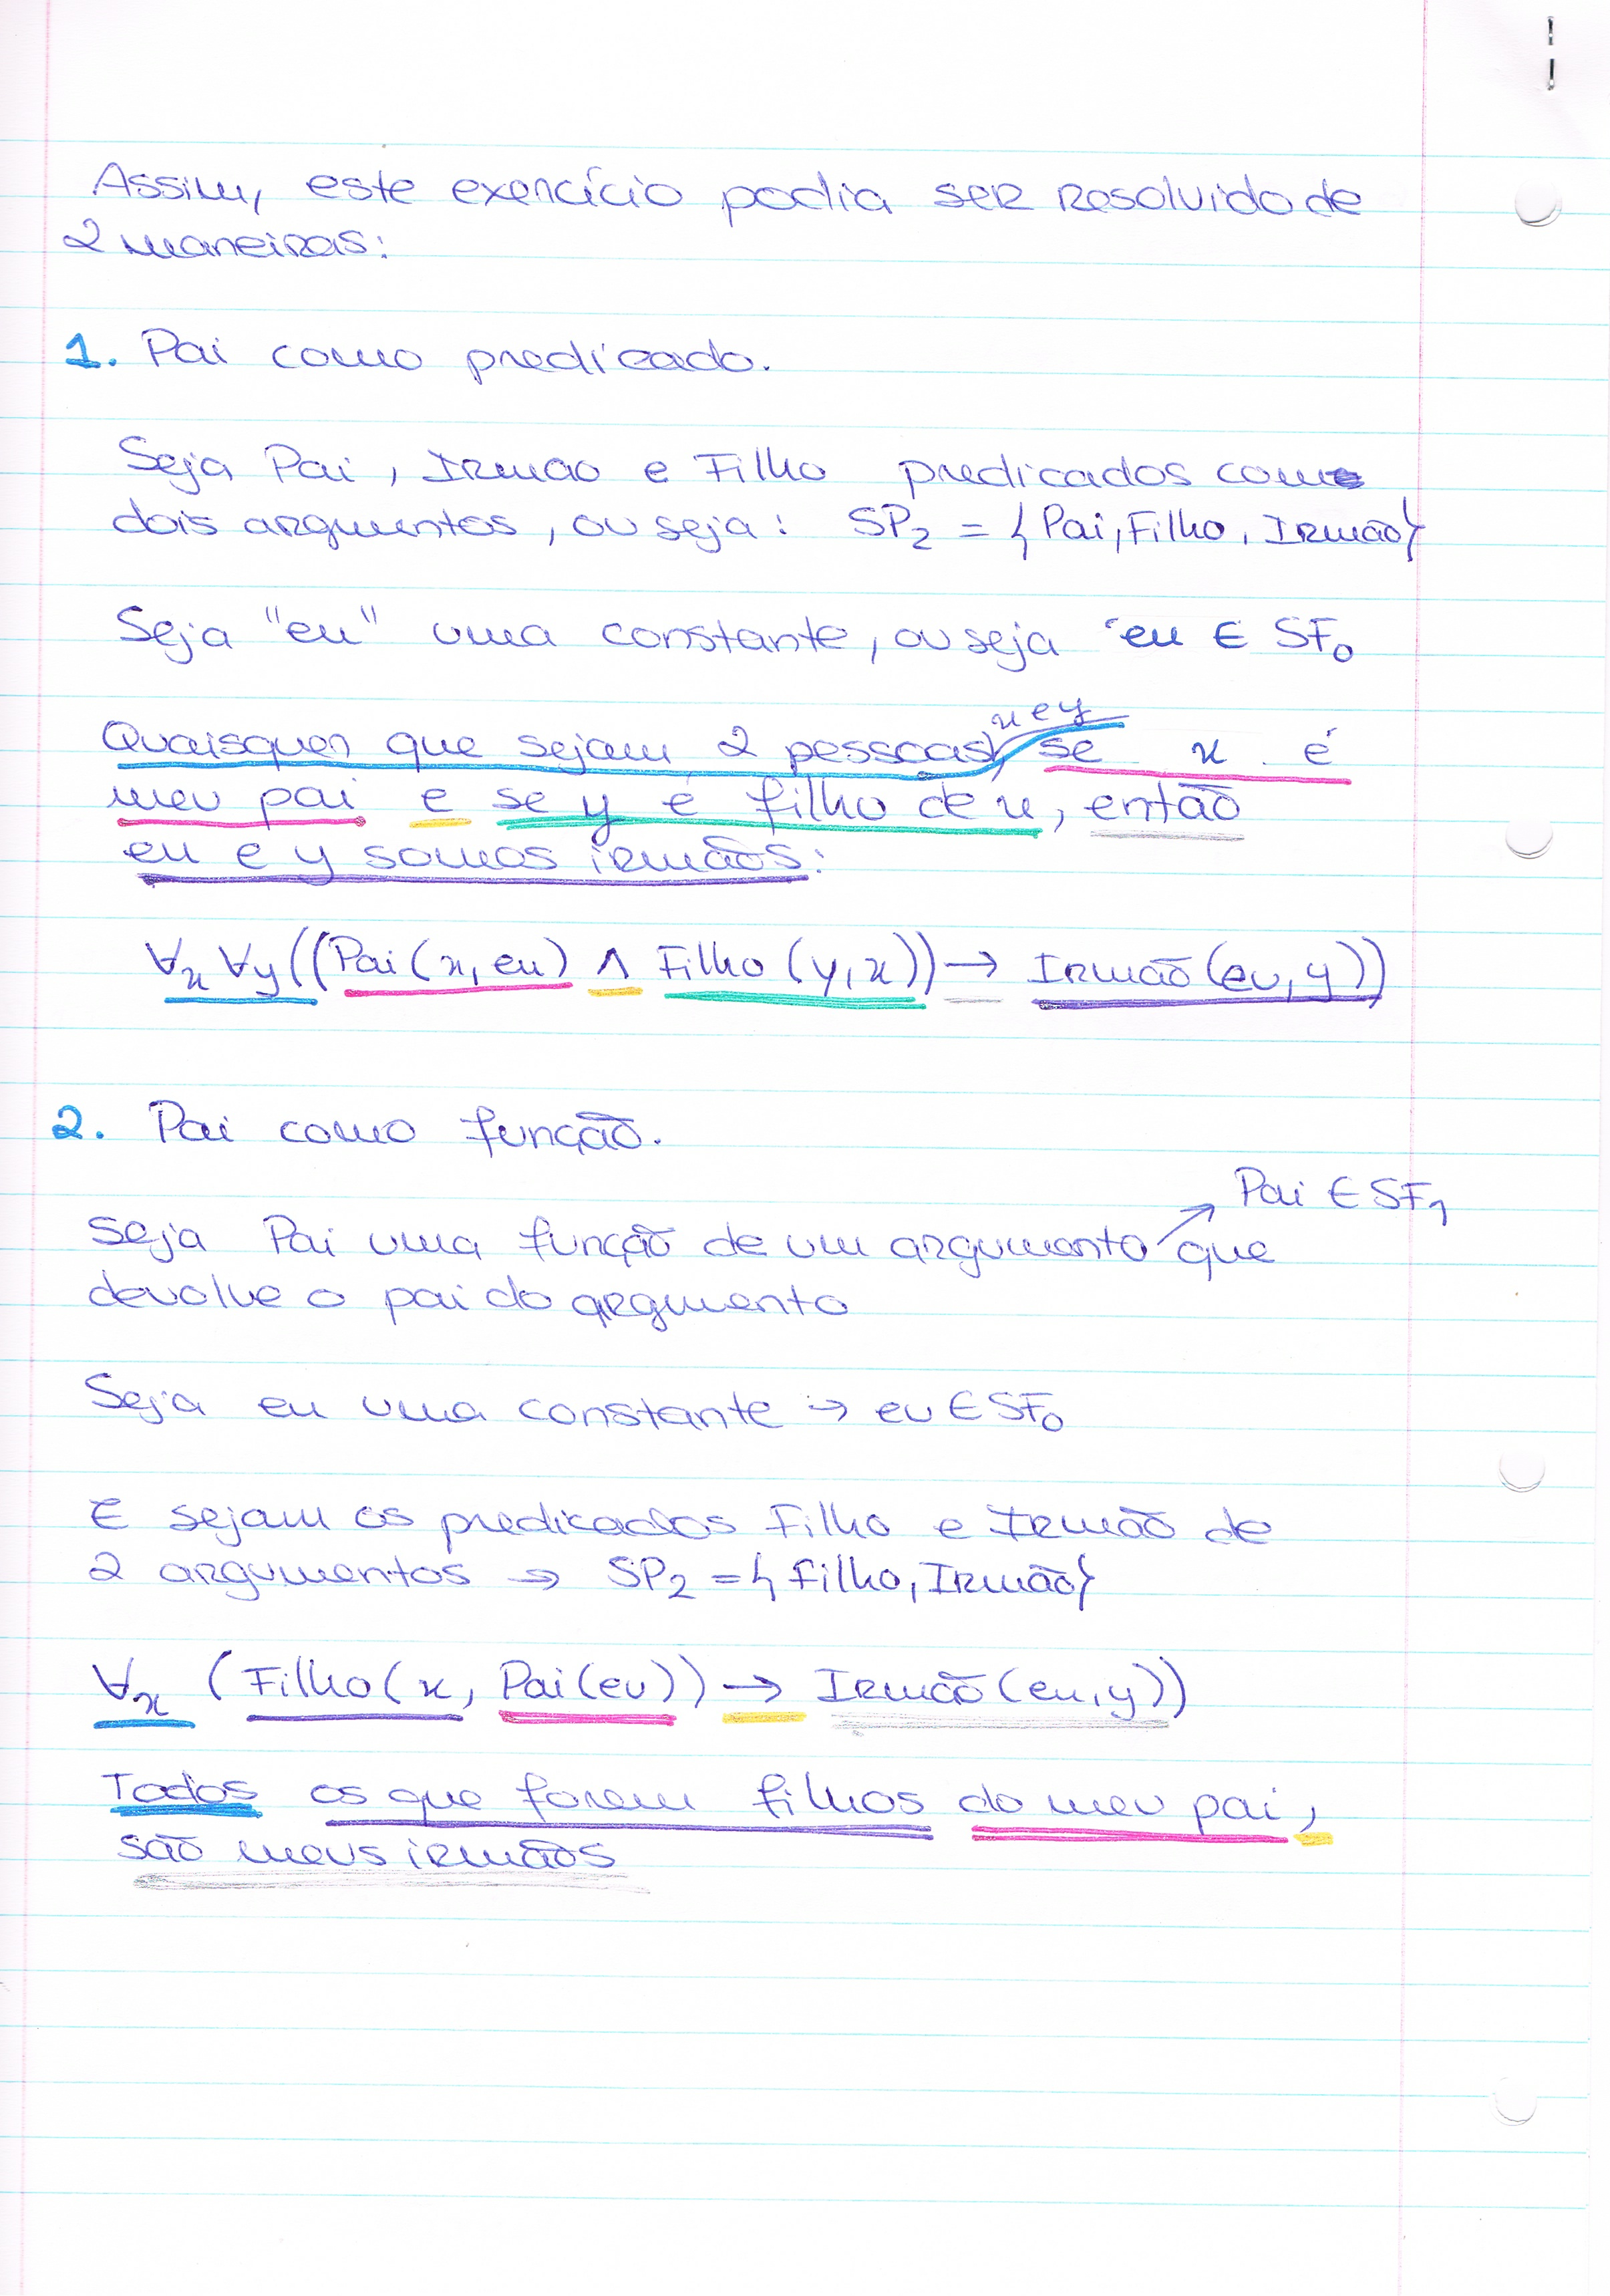 Assim, este exercício podia ser resolvido de
2 maneiras:
1. Pai como predicado.
Seja Pai, Irmão e Filho predicados como
dois argumentos, ou seja: SP₂ = {Pai, Filho, Irmão}
Seja "eu" uma constante, ou seja eu ∈ SF₀
Quaisquer que sejam 2 pessoas, x e y se x é
meu pai e se y é filho de x, então
eu e y somos irmãos:
∀x ∀y((Pai(x, eu) ∧ Filho (y, x)) → Irmão(eu, y))
2. Pai como função.
Pai ∈ SF₁
Seja Pai uma função de um argumento ↗ que
devolve o pai do argumento
Seja eu uma constante → eu ∈ SF₀
E sejam os predicados Filho e Irmão de
2 argumentos → SP₂ = {Filho, Irmão}
∀x (Filho(x, Pai(eu)) → Irmão(eu, y))
Todos os que forem filhos do meu pai,
são meus irmãos